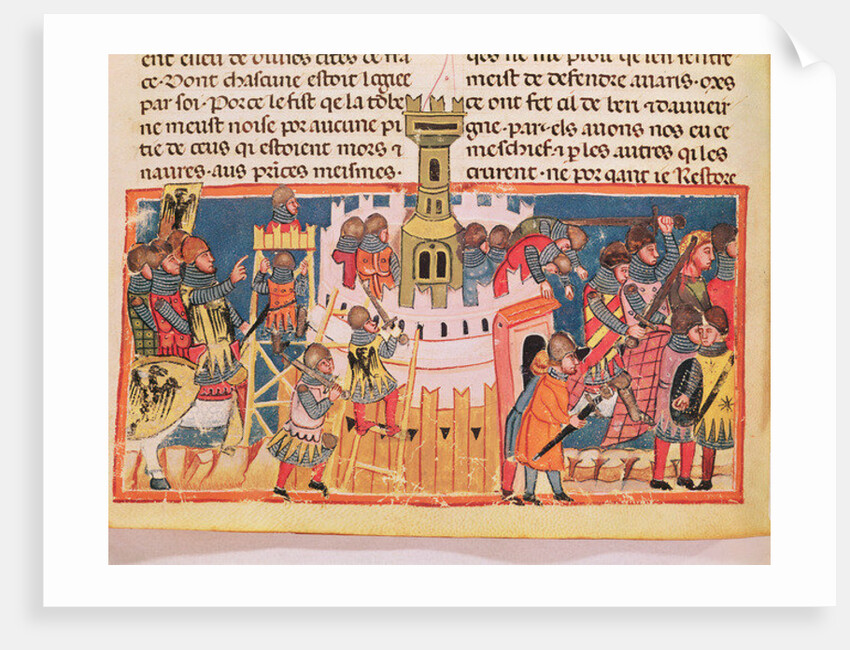 ce·Dont chascune estoit logiee
par soi·Por ce le fist que la tobe
ne meust noise por aucune pi
tie de ceus qi estoient mors ⁊
naures·aus prices meismes·
qes ne me ploit qe ien sentre
meist de defendre auaris·
ce ont fet cil de beri ⁊
gne·par·els auons nos eu ce
meschief·⁊ p les autres qi les
crurent·ne por qant ie Restore